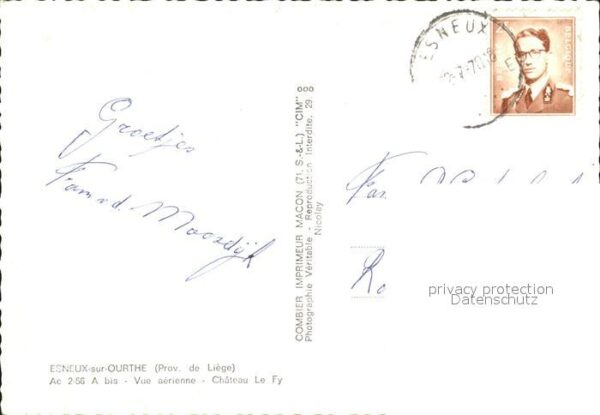 ESNEUX
BELGIQUE
Groetjes
Fam v.d. Moordijk
Fam
Ro
privacy protection
Datenschutz
COMBIER IMPRIMEUR MACON (71, S.-&-L.) "CIM"
Photographie Véritable - Reproduction Interdite. 29
Nicolay
ESNEUX-sur-OURTHE (Prov. de Liège)
Ac 2-56 A bis - Vue aérienne - Château Le Fy